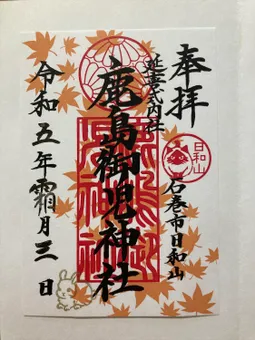 奉拝
日和山
石巻市日和山
延喜式内社
鹿島御児神社
令和五年霜月三日